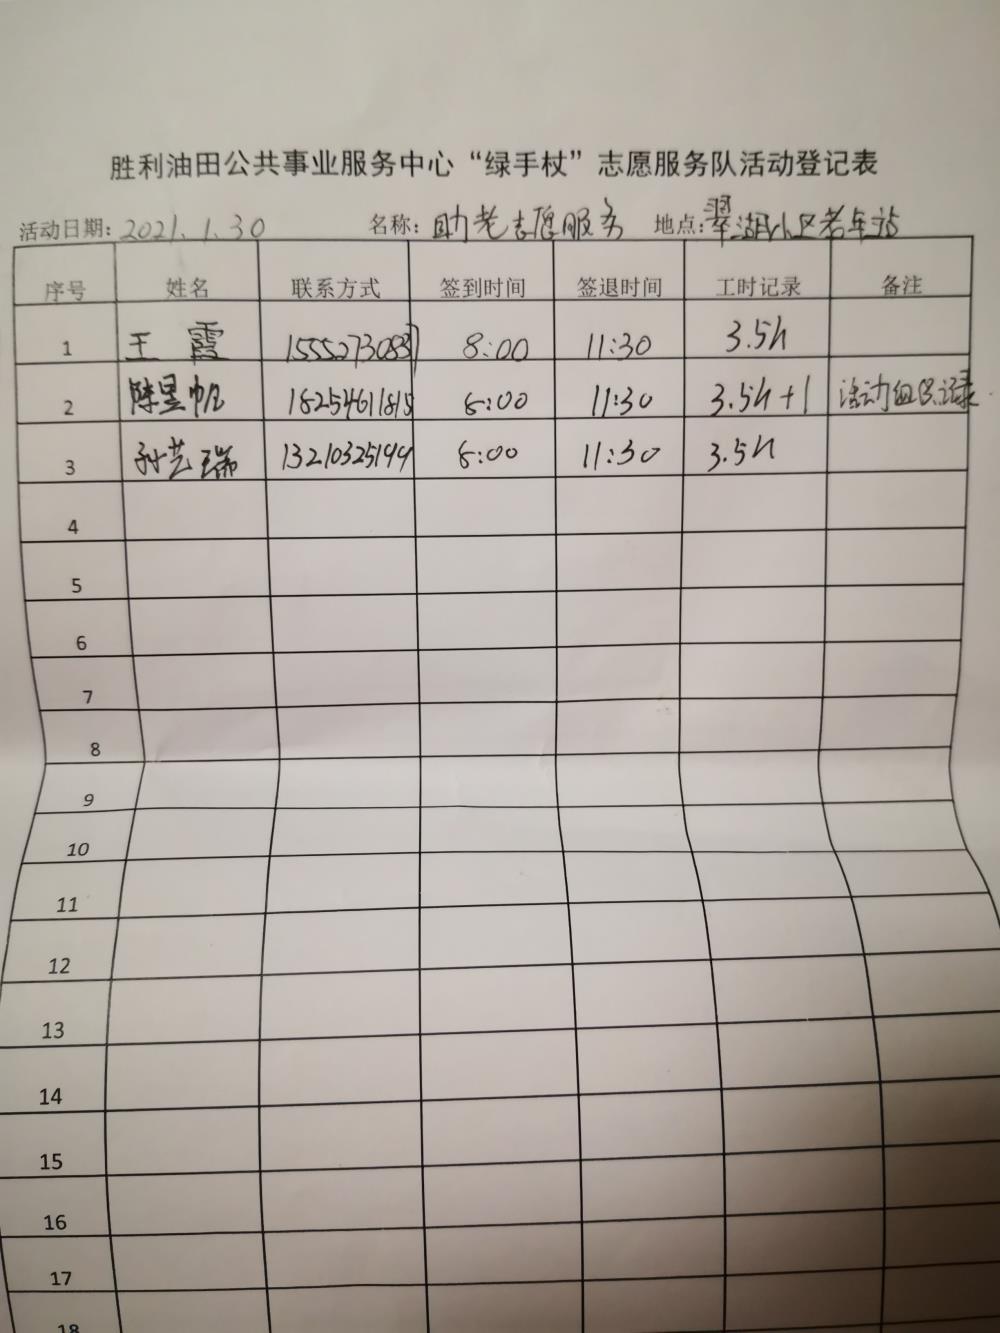 胜利油田公共事业服务中心“绿手杖”志愿服务队活动登记表
活动日期: 2021.1.30 名称: 助老志愿服务 地点: 翠湖小区老车站
序号 姓名 联系方式 签到时间 签退时间 工时记录 备注
1 王霞 8:00 11:30 3.5h
2 陈昱帆 18254611815 8:00 11:30 3.5h+1 活动组织记录
3 孙艺瑞 13210325199 8:00 11:30 3.5h
4
5
6
7
8
9
10
11
12
13
14
15
16
17
18